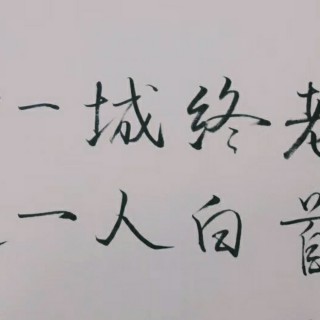 一城终老
一人白首